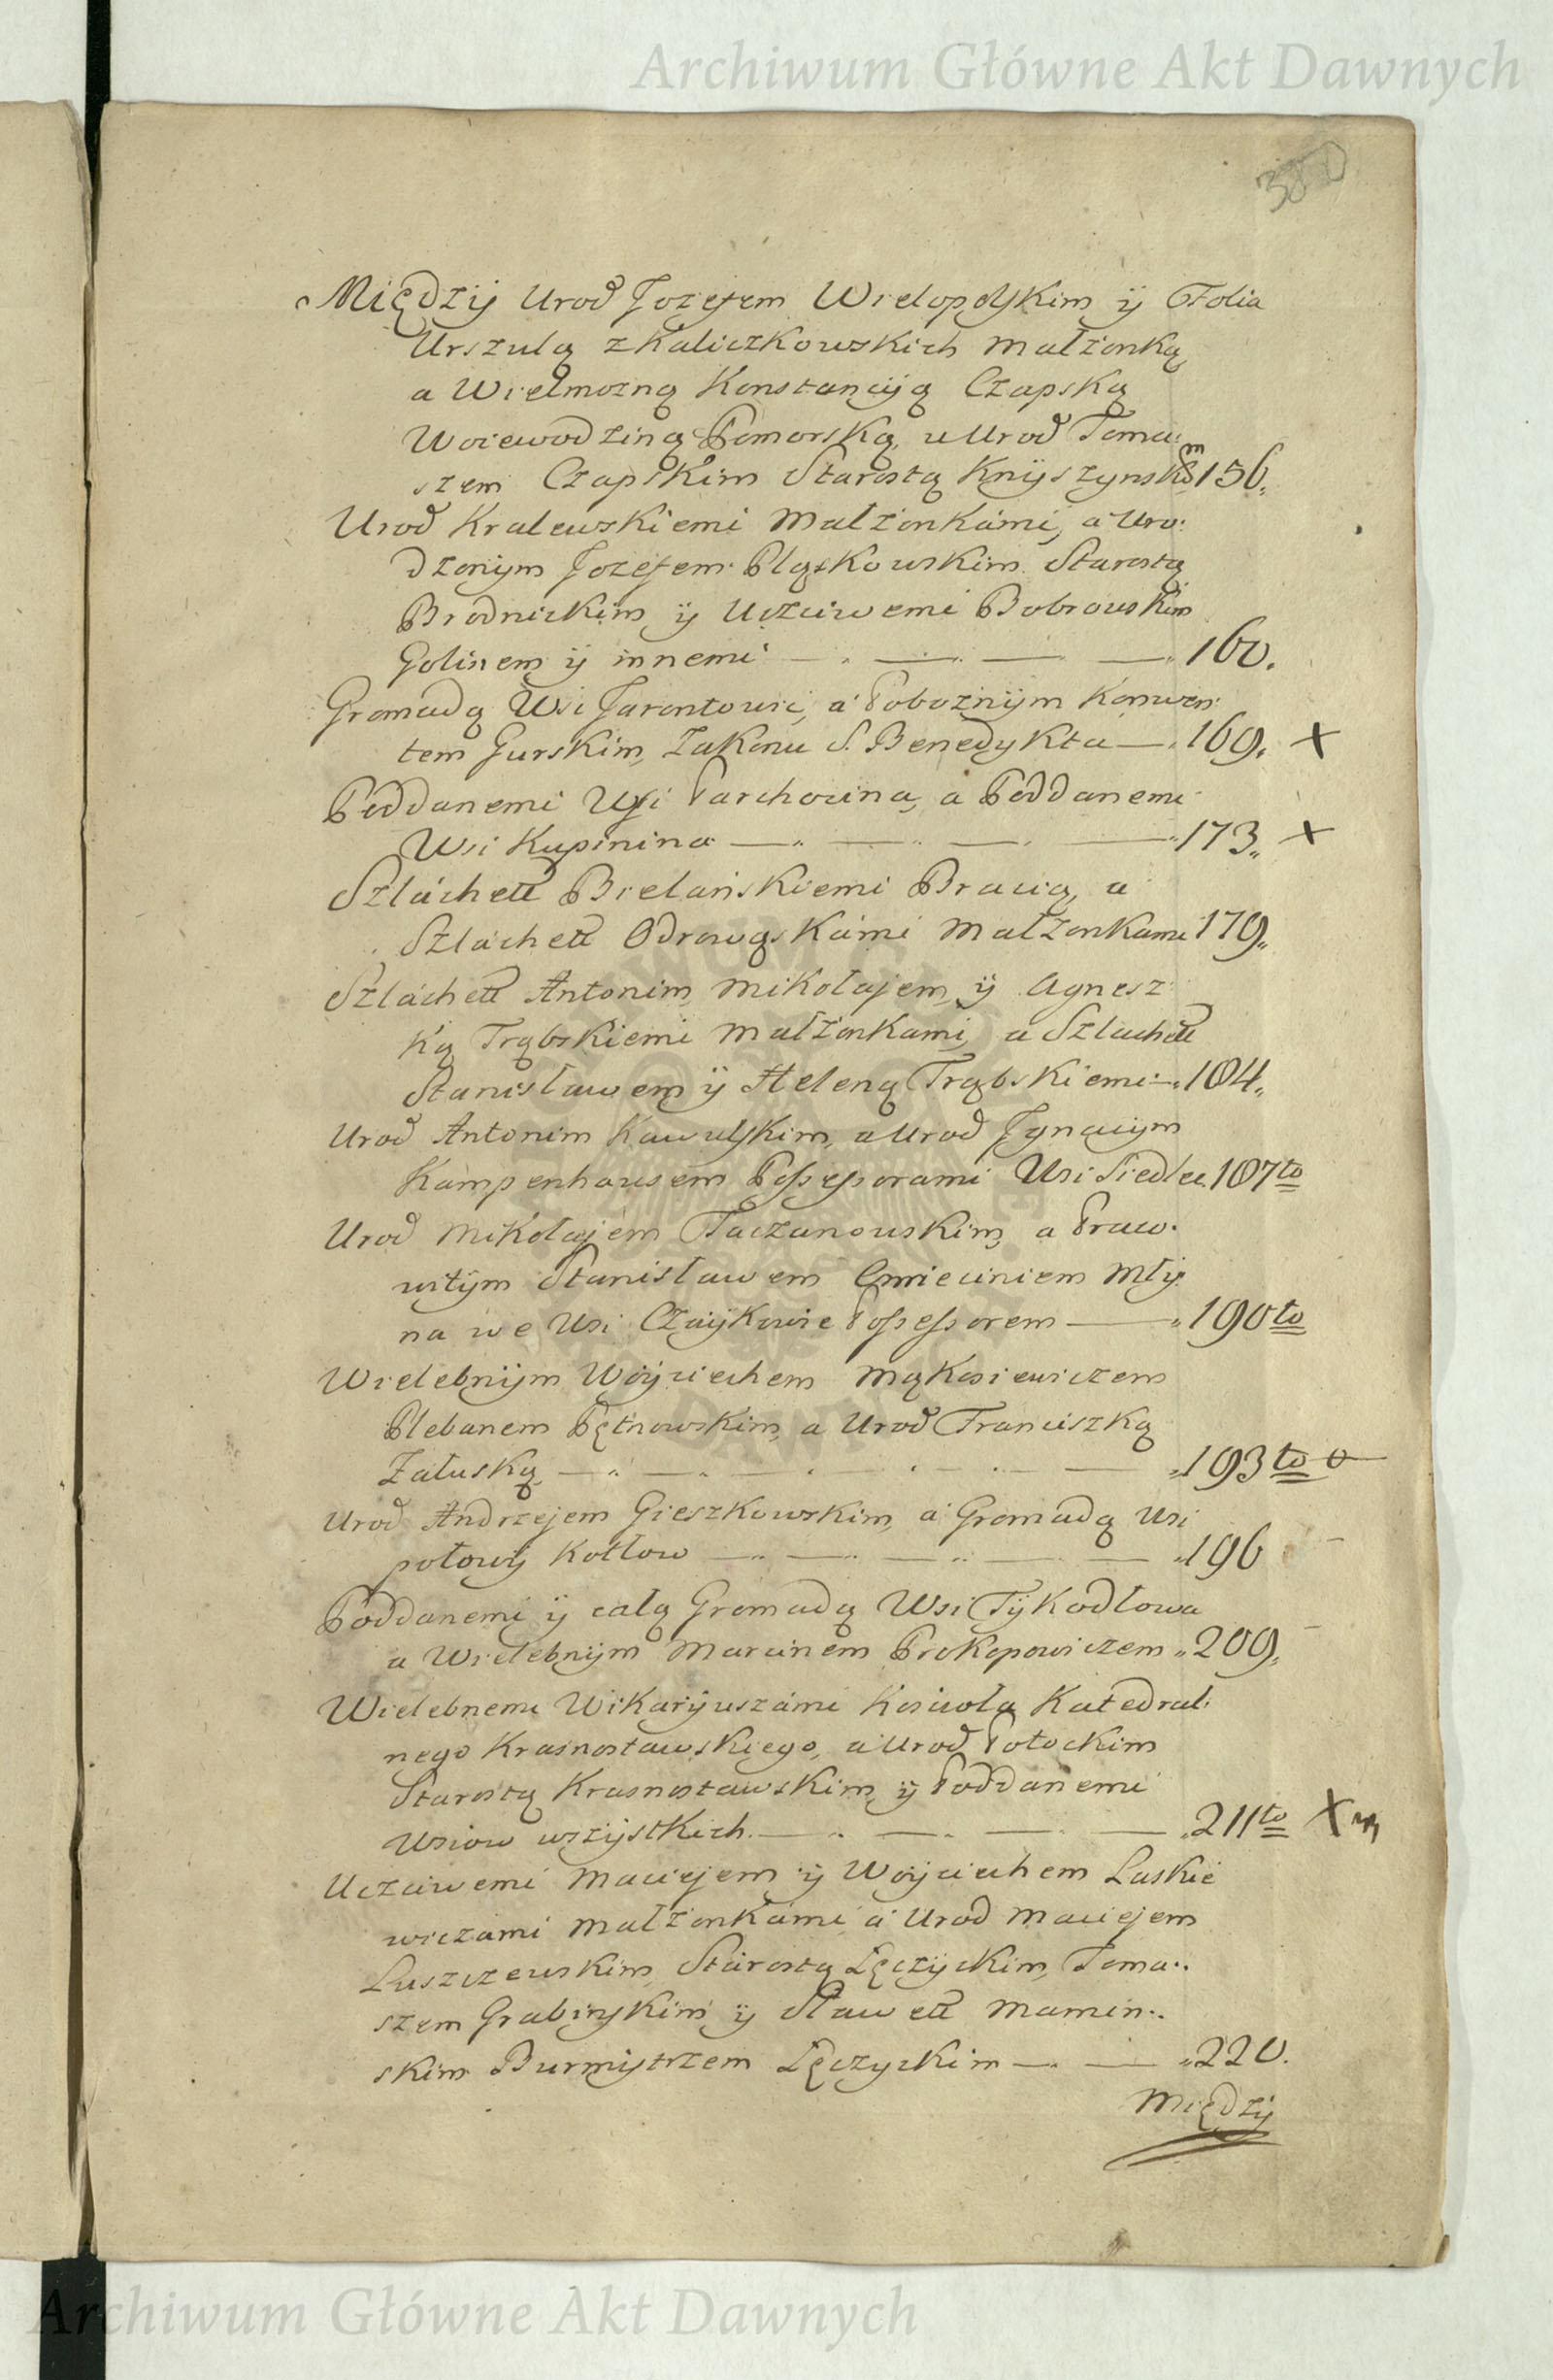 Archiwum Główne Akt Dawnych
380
Między Urod Jozefem Wielopolskim ÿ Folia
Urszulą z Kaliczkowskich Małżonką
a Wielmożną Konstancyą Czapską
Woiewodziną Pomorską, a Urod Toma:
szem Czapskim Starostą Knyszynskim 156.
Urod Kralewskiemi Małżonkámi, a Uro:
dzonym Jozefem Pląskowskim Starostą
Brodnickim, ÿ Uczciwemi Bobrowskim
Golisem ÿ innemi 160.
Gromadą Wsi Jarontowic, a Pobożnym Konwen:
tem Gurskim, Zakonu S. Benedykta 169. X
Poddanemi Wsi Parchocina, a Poddanemi
Wsi Kupinina 173. X
Szláchett Bielańskiemi Bracią, a
Szláchett Odrowąskámi Małżonkami 179.
Szláchett Antonim, Mikołajem, ÿ Agnesz:
ką Trąbskiemi Małżonkami, a Szlachett
Stanisławem ÿ Heleną Trąbskiemi 184.
Urod Antonim Kawulskim, a Urod Jgnacym
Kámpenhausem Possessorami Wsi Siedlec 187to
Urod Mikołajem Taczanowskim, a Praw:
witym Stanisławem Cmieciniem Mły:
na we Wsi Czaykowie Possessorem 190to
Wielebnym Woyciechem Mąkosiewiczem
Plebanem Pętnowskim, a Urod Franciszką
Załuską 193to
Urod Andrzejem Gieszkowskim, a Gromadą Wsi
połowy Kotłow 196
Poddanemi ÿ całą Gromadą Wsi Tykadłowa
a Wielebnym Marcinem Prokopowiczem 209.
Wielebnemi Wikaryuszámi Koscioła Katedral:
nego Krasnostawskiego, a Urod Potockim
Starostą Krasnostawskim, ÿ Poddanemi
Wsiow wszystkich 211to X
Uczciwemi Maciejem ÿ Woyciechem Laskie
wiczami Małżonkámi a Urod Maciejem
Luszczewskim, Stárostą Łęczyckim, Toma:
szem Grabinskim, ÿ Sławett Mamin:
skim Burmistrzem Łęczyckim 220.
Między
Archiwum Główne Akt Dawnych